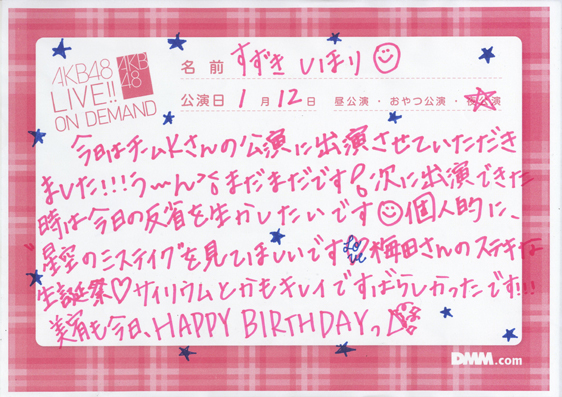 AKB48
LIVE!!
ON DEMAND
AKB
48
名前 すずき しほり
公演日 1月12日 昼公演・おやつ公演・夜公演
今日はチームKさんの公演に出演させていただき
ました!!!う〜ん まだまだです 次に出演できた
時は今日の反省を生かしたいです 個人的に、
"星空のミステイク"を見てほしいです Love 梅田さんのステキな
生誕祭♡サイリウムとかもキレイですばらしかったです!!!
美宥も今日、HAPPY BIRTHDAYっ
DMM.com